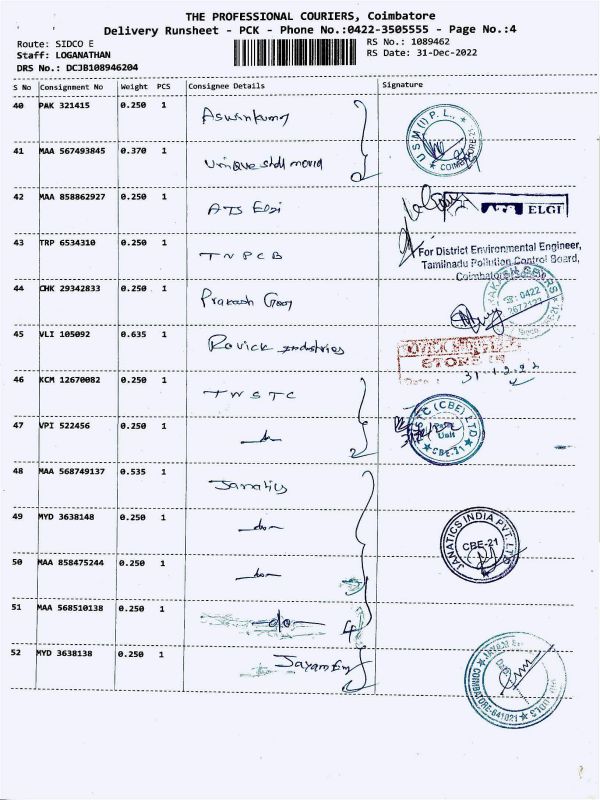 THE PROFESSIONAL COURIERS, Coimbatore
Delivery Runsheet - PCK - Phone No.:0422-3505555 - Page No.:4
Route: SIDCO E
RS No.: 1089462
Staff: LOGANATHAN
RS Date: 31-Dec-2022
DRS No.: DCJB108946204
S No Consignment No Weight PCS Consignee Details Signature
40 PAK 321415 0.250 1 Aswinkumar
USM (I) P. L., COIMBATORE-21
41 MAA 567493845 0.370 1 Unique shell mould
2
42 MAA 858862927 0.250 1 ATS Elgi
ELGI
43 TRP 6534310 0.250 1 TNPCB
For District Environmental Engineer,
Tamilnadu Pollution Control Board,
Coimbatore
44 CHK 29342833 0.250 1 Prakash Gears
0422
45 VLI 105092 0.635 1 Ravick industries
STORES
31.12.22
46 KCM 12670082 0.250 1 TNSTC
47 VPI 522456 0.250 1 do
2
(CBE) LTD
Unit
CBE-21
48 MAA 568749137 0.535 1 Janatics
49 MYD 3638148 0.250 1 do
JANATICS INDIA PVT. LTD
CBE-21
50 MAA 858475244 0.250 1 do
51 MAA 568510138 0.250 1 do
4
52 MYD 3638138 0.250 1 Jayam Eng
COIMBATORE-641021